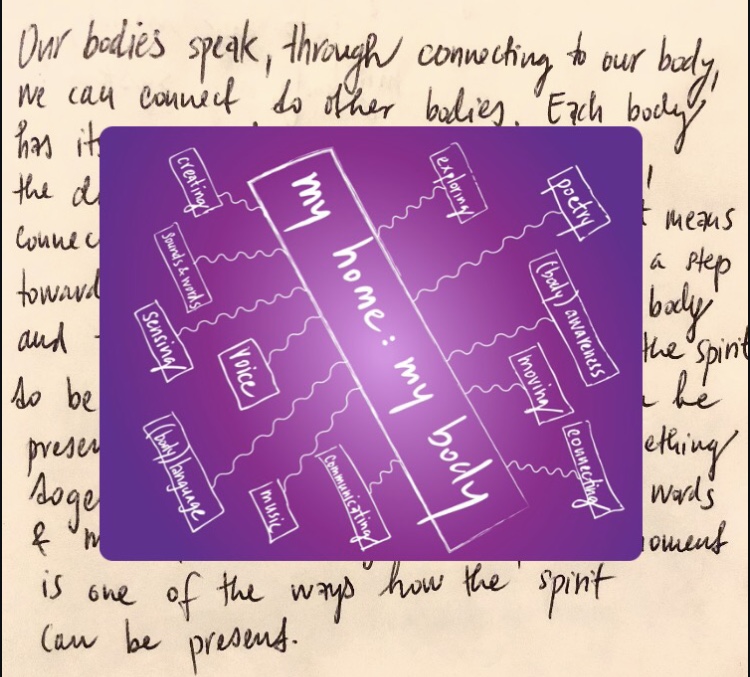 Our bodies speak, through connecting to our body,
we can connect to other bodies. Each body
has its
the
connec
means
toward
a step
and
body
the spirit
to be
be
presen
ething
toge
words
&
oment
is one of the ways how the spirit
can be present.
my home: my body
creating
sounds & words
sensing
voice
(body) language
music
communicating
exploring
poetry
(body) awareness
moving
connecting